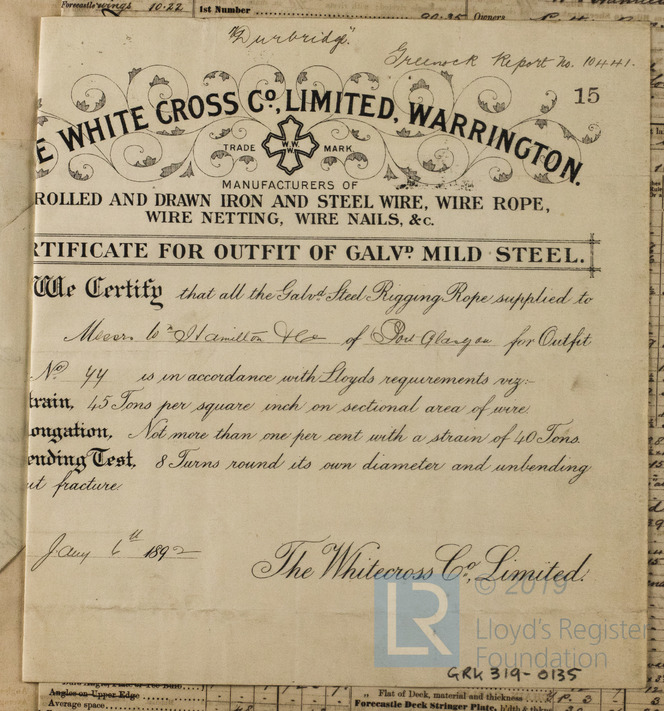 Forecastle wings 10.22 1st Number
Owners
"Durbridge".
Greenock Report No. 10441.
15
E WHITE CROSS Co., LIMITED, WARRINGTON.
TRADE MARK.
W.W.W.
MANUFACTURERS OF
ROLLED AND DRAWN IRON AND STEEL WIRE, WIRE ROPE,
WIRE NETTING, WIRE NAILS, &c.
RTIFICATE FOR OUTFIT OF GALVD MILD STEEL.
We Certify that all the Galvd Steel Rigging Rope supplied to
Messrs Wm Hamilton & Co of Port Glasgow for Outfit
No 44 is in accordance with Lloyds requirements viz:-
train, 45 Tons per square inch on sectional area of wire.
ongation, Not more than one per cent with a strain of 40 Tons.
ending Test, 8 Turns round its own diameter and unbending
ut fracture.
Jany 6th 1892
The Whitecross Co., Limited.
© 2019
LR
Lloyd's Register
Foundation
GRK 319-0135
Angles on Upper Edge
Average space
„ Flat of Deck, material and thickness
Forecastle Deck Stringer Plate,